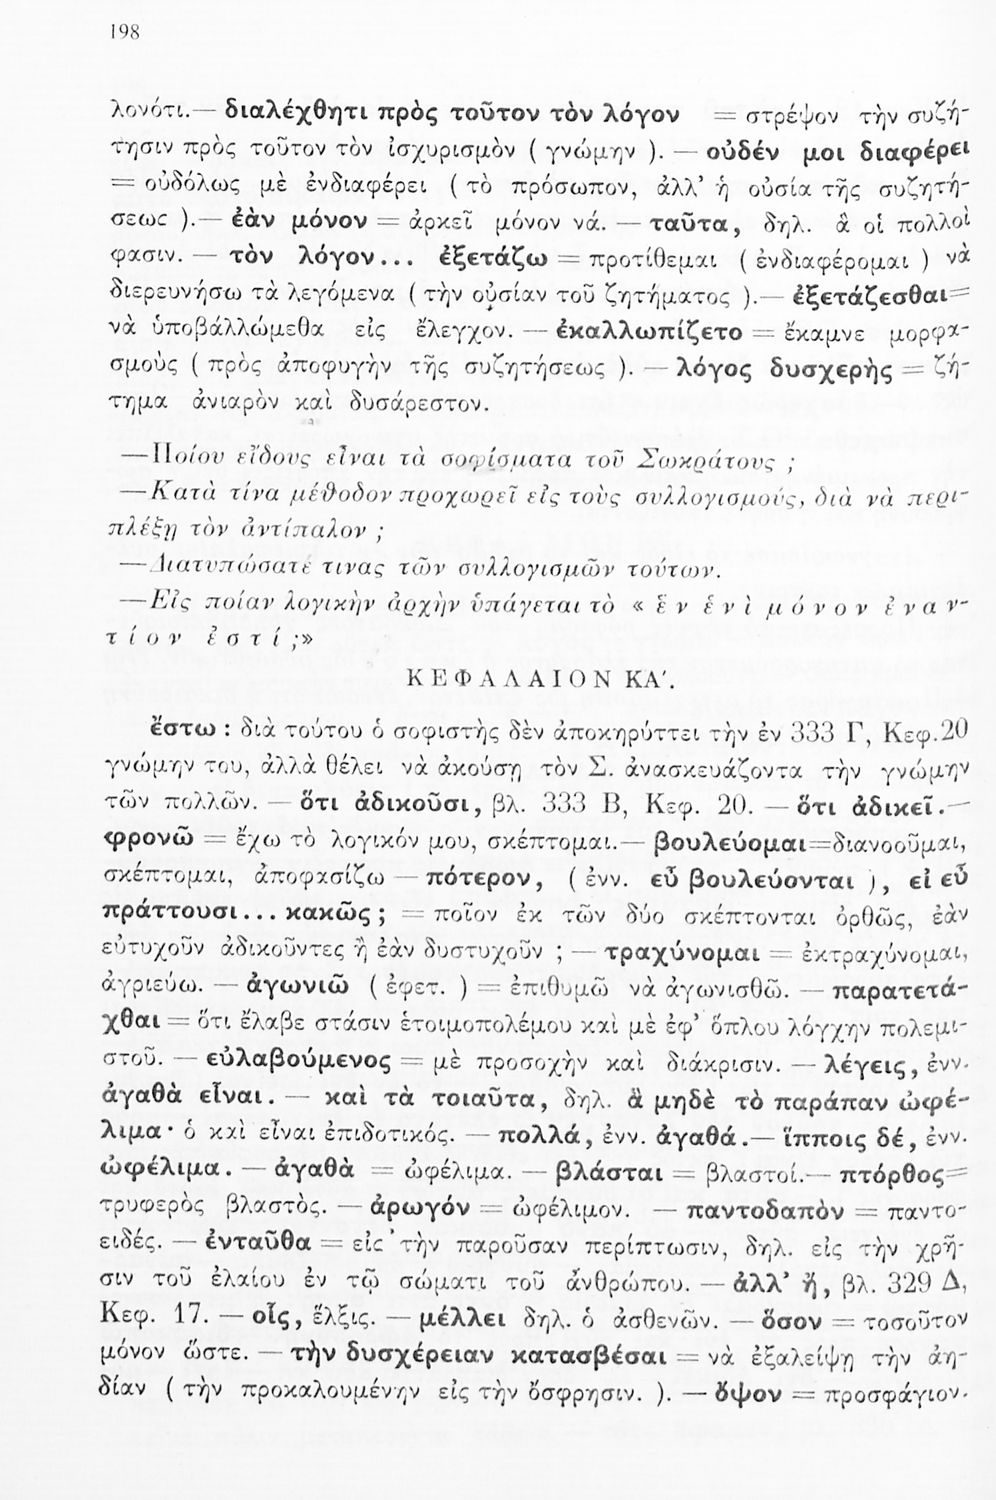 198
λονότι.— διαλέχθητι πρὸς τοῦτον τὸν λόγον = στρέψον τὴν συζή-
τησιν πρὸς τοῦτον τὸν ἰσχυρισμὸν ( γνώμην ). — οὐδέν μοι διαφέρει
= οὐδόλως μὲ ἐνδιαφέρει ( τὸ πρόσωπον, ἀλλ’ ἡ οὐσία τῆς συζητή-
σεως ).— ἐὰν μόνον = ἀρκεῖ μόνον νά. — ταῦτα, δηλ. ἃ οἱ πολλοί
φασιν. — τὸν λόγον... ἐξετάζω = προτίθεμαι ( ἐνδιαφέρομαι ) νὰ
διερευνήσω τὰ λεγόμενα ( τὴν οὐσίαν τοῦ ζητήματος ).— ἐξετάζεσθαι=
νὰ ὑποβάλλώμεθα εἰς ἔλεγχον. — ἐκαλλωπίζετο = ἔκαμνε μορφα-
σμοὺς ( πρὸς ἀποφυγὴν τῆς συζητήσεως ). — λόγος δυσχερὴς = ζή-
τημα ἀνιαρὸν καὶ δυσάρεστον.
—Ποίου εἴδους εἶναι τὰ σοφίσματα τοῦ Σωκράτους ;
—Κατὰ τίνα μέθοδον προχωρεῖ εἰς τοὺς συλλογισμούς, διὰ νὰ περι-
πλέξῃ τὸν ἀντίπαλον ;
—Διατυπώσατέ τινας τῶν συλλογισμῶν τούτων.
—Εἰς ποίαν λογικὴν ἀρχὴν ὑπάγεται τὸ « ἓν ἑνὶ μόνον ἐναν-
τίον ἐστί ;»
ΚΕΦΑΛΑΙΟΝ ΚΑ'.
ἔστω : διὰ τούτου ὁ σοφιστὴς δὲν ἀποκηρύττει τὴν ἐν 333 Γ, Κεφ.20
γνώμην του, ἀλλὰ θέλει νὰ ἀκούσῃ τὸν Σ. ἀνασκευάζοντα τὴν γνώμην
τῶν πολλῶν. — ὅτι ἀδικοῦσι, βλ. 333 Β, Κεφ. 20. — ὅτι ἀδικεῖ.—
φρονῶ = ἔχω τὸ λογικόν μου, σκέπτομαι.— βουλεύομαι=διανοοῦμαι,
σκέπτομαι, ἀποφασίζω — πότερον, ( ἐνν. εὖ βουλεύονται ), εἰ εὖ
πράττουσι... κακῶς ; = ποῖον ἐκ τῶν δύο σκέπτονται ὀρθῶς, ἐὰν
εὐτυχοῦν ἀδικοῦντες ἢ ἐὰν δυστυχοῦν ; — τραχύνομαι = ἐκτραχύνομαι,
ἀγριεύω. — ἀγωνιῶ ( ἐφετ. ) = ἐπιθυμῶ νὰ ἀγωνισθῶ. — παρατετά-
χθαι = ὅτι ἔλαβε στάσιν ἑτοιμοπολέμου καὶ μὲ ἐφ’ ὅπλου λόγχην πολεμι-
στοῦ. — εὐλαβούμενος = μὲ προσοχὴν καὶ διάκρισιν. — λέγεις, ἐνν.
ἀγαθὰ εἶναι. — καὶ τὰ τοιαῦτα, δηλ. ἃ μηδὲ τὸ παράπαν ὠφέ-
λιμα· ὁ καὶ εἶναι ἐπιδοτικός. — πολλά, ἐνν. ἀγαθά.— ἵπποις δέ, ἐνν.
ὠφέλιμα. — ἀγαθὰ = ὠφέλιμα. — βλάσται = βλαστοί.— πτόρθος=
τρυφερὸς βλαστὸς. — ἀρωγόν = ὠφέλιμον. — παντοδαπὸν = παντο-
ειδές. — ἐνταῦθα = εἰς τὴν παροῦσαν περίπτωσιν, δηλ. εἰς τὴν χρῆ-
σιν τοῦ ἐλαίου ἐν τῷ σώματι τοῦ ἀνθρώπου. — ἀλλ’ ἤ, βλ. 329 Δ,
Κεφ. 17. — οἷς, ἕλξις. — μέλλει δηλ. ὁ ἀσθενῶν. — ὅσον = τοσοῦτον
μόνον ὥστε. — τὴν δυσχέρειαν κατασβέσαι = νὰ ἐξαλείψῃ τὴν ἀη-
δίαν ( τὴν προκαλουμένην εἰς τὴν ὄσφρησιν. ). — ὄψον = προσφάγιον.